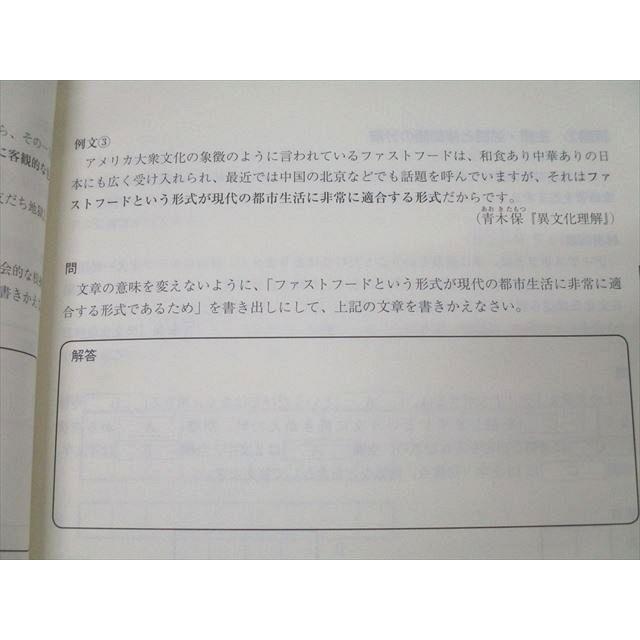 例文③
アメリカ大衆文化の象徴のように言われているファストフードは、和食あり中華ありの日
本にも広く受け入れられ、最近では中国の北京などでも話題を呼んでいますが、それはファ
ストフードという形式が現代の都市生活に非常に適合する形式だからです。
あおきたもつ
(青木保『異文化理解』)
問
文章の意味を変えないように、「ファストフードという形式が現代の都市生活に非常に適
合する形式であるため」を書き出しにして、上記の文章を書きかえなさい。
解答
ら、その一
に客観的な
友だち地獄
会的な
書きかえ